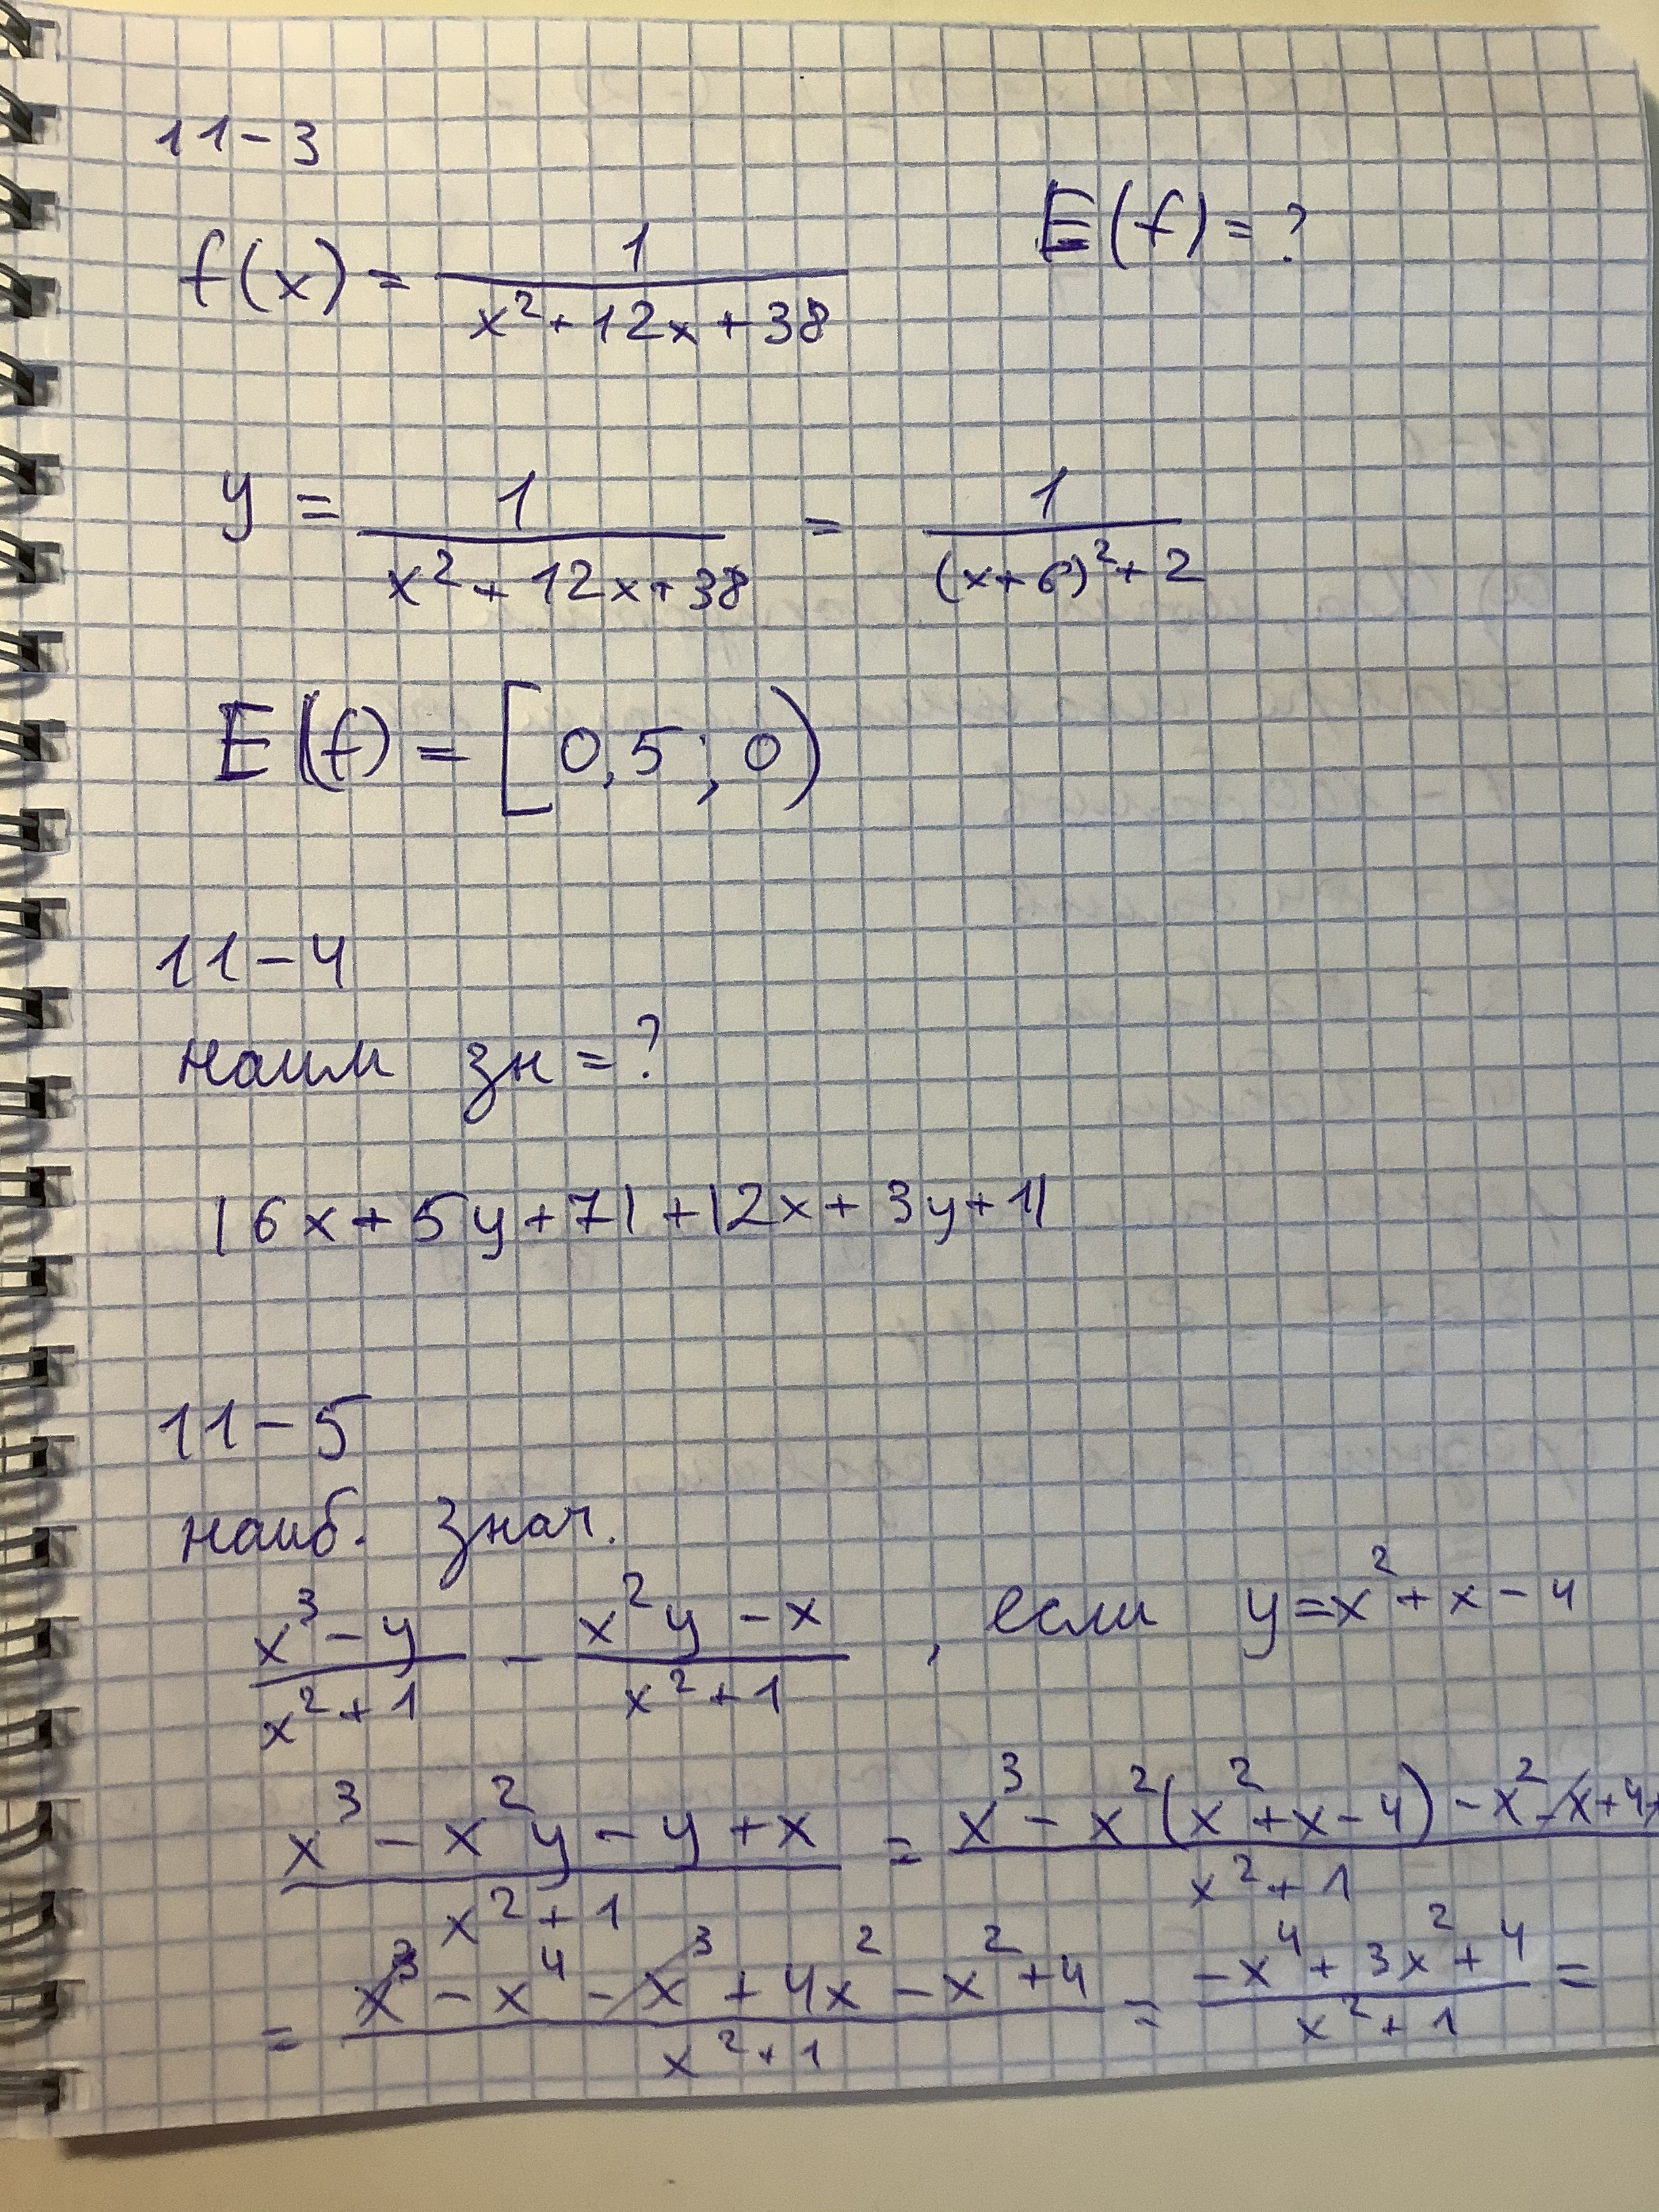 11-3
f(x) = 1/(x²+12x+38)    E(f)=?
y = 1/(x²+12x+38) = 1/((x+6)²+2)
E(f) = [0,5; 0)
11-4
наим зн=?
|6x+5y+7|+|2x+3y+1|
11-5
наиб. знач.
(x³-y)/(x²+1) - (x²y-x)/(x²+1), если y=x²+x-4
(x³-x²y-y+x)/(x²+1) = (x³-x²(x²+x-4)-x²-x+4+)/(x²+1)
= (x³-x⁴-x³+4x²-x²+4)/(x²+1) = (-x⁴+3x²+4)/(x²+1) =